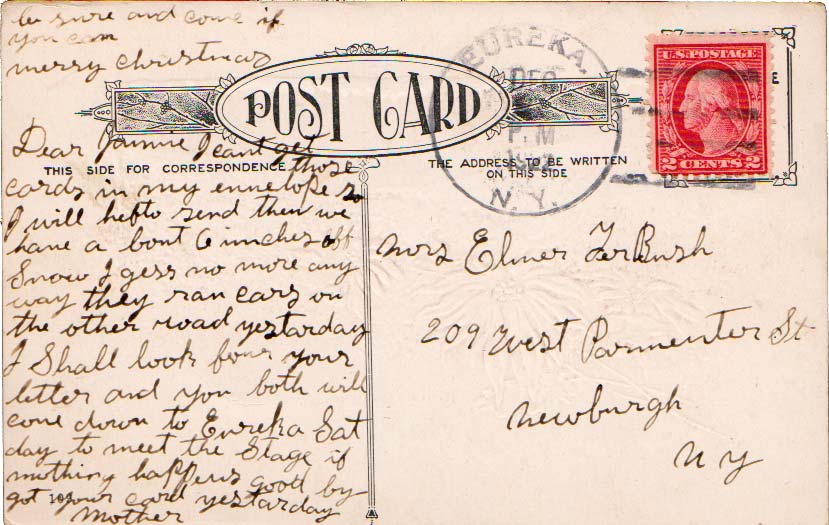 be sure and come if
you can
merry christmas
POST CARD
THIS SIDE FOR CORRESPONDENCE
THE ADDRESS TO BE WRITTEN
ON THIS SIDE
EUREKA
DEC
P.M
N.Y.
U.S. POSTAGE
2 CENTS 2
Dear Jannie I cant get
those
cards in my ennelope so
I will hefto send then we
hane a bont 6 innches off
Snow I gess no more any
way they ran cars on
the other road yestarday
I Shall look four your
letter and you both will
come down to Eureka Sat
day to meet the Stage if
mothing happens good by
got your card yestarday
Mother
Mrs Elmer TerBush
209 West Parmenter St
Newburgh
N Y